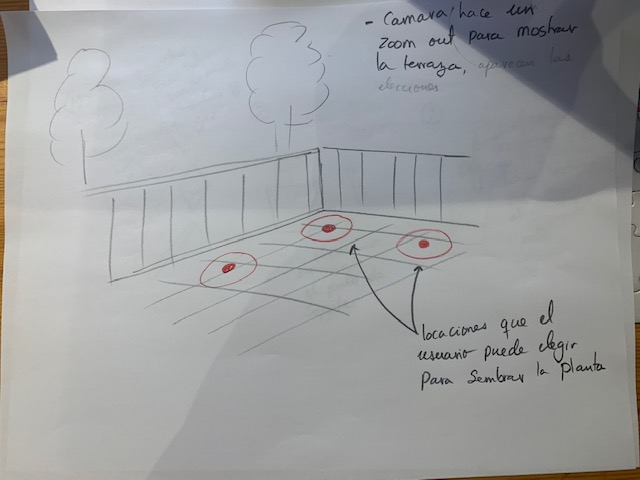 - Camara hace un
zoom out para mostrar
la terraza, aparecen las
elecciones
locaciones que el
usuario puede elegir
para sembrar la planta